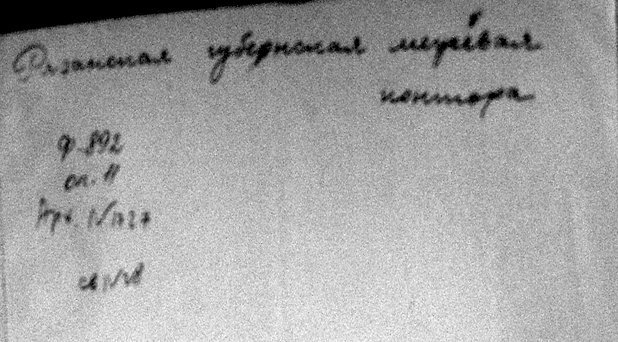 Рязанская губернская межевая
контора
ф. 892
оп. 11